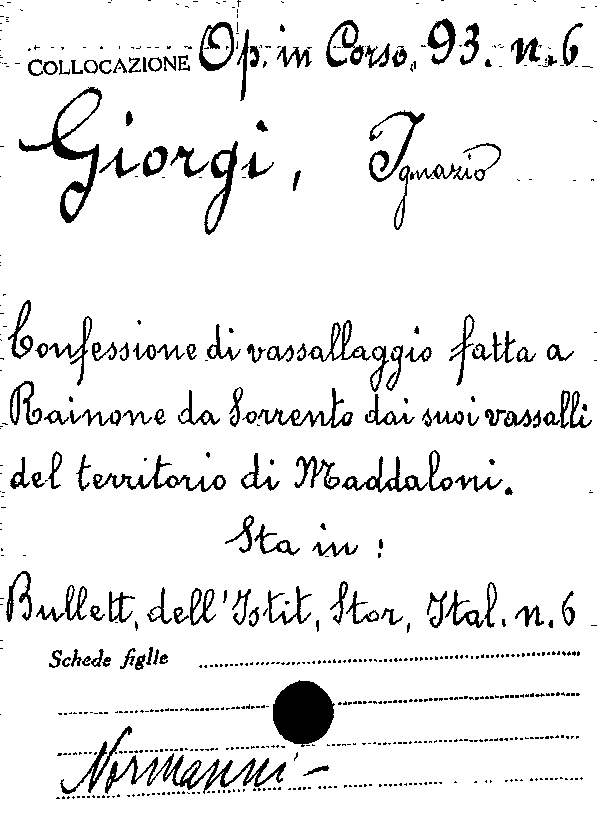 COLLOCAZIONE Op. in Corso, 93. n. 6
Giorgi, Ignazio
Confessione di vassallaggio fatta a
Rainone da Sorrento dai suoi vassalli
del territorio di Maddaloni.
Sta in:
Bullett, dell'Istit, Stor, Ital. n. 6
Schede figlie
Normanni -